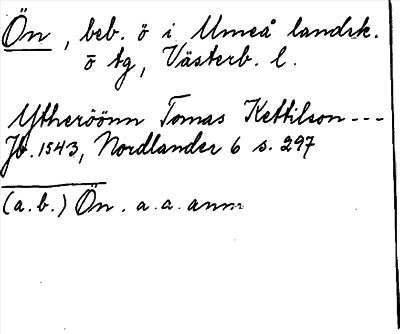 Ön, beb. ö i Umeå landsk.
ö tg, Västerb. l.
Ytheröönn Tomas Kettilson ---
Jb. 1543, Nordlander 6 s. 297
(a.b.) Ön. a.a. anm